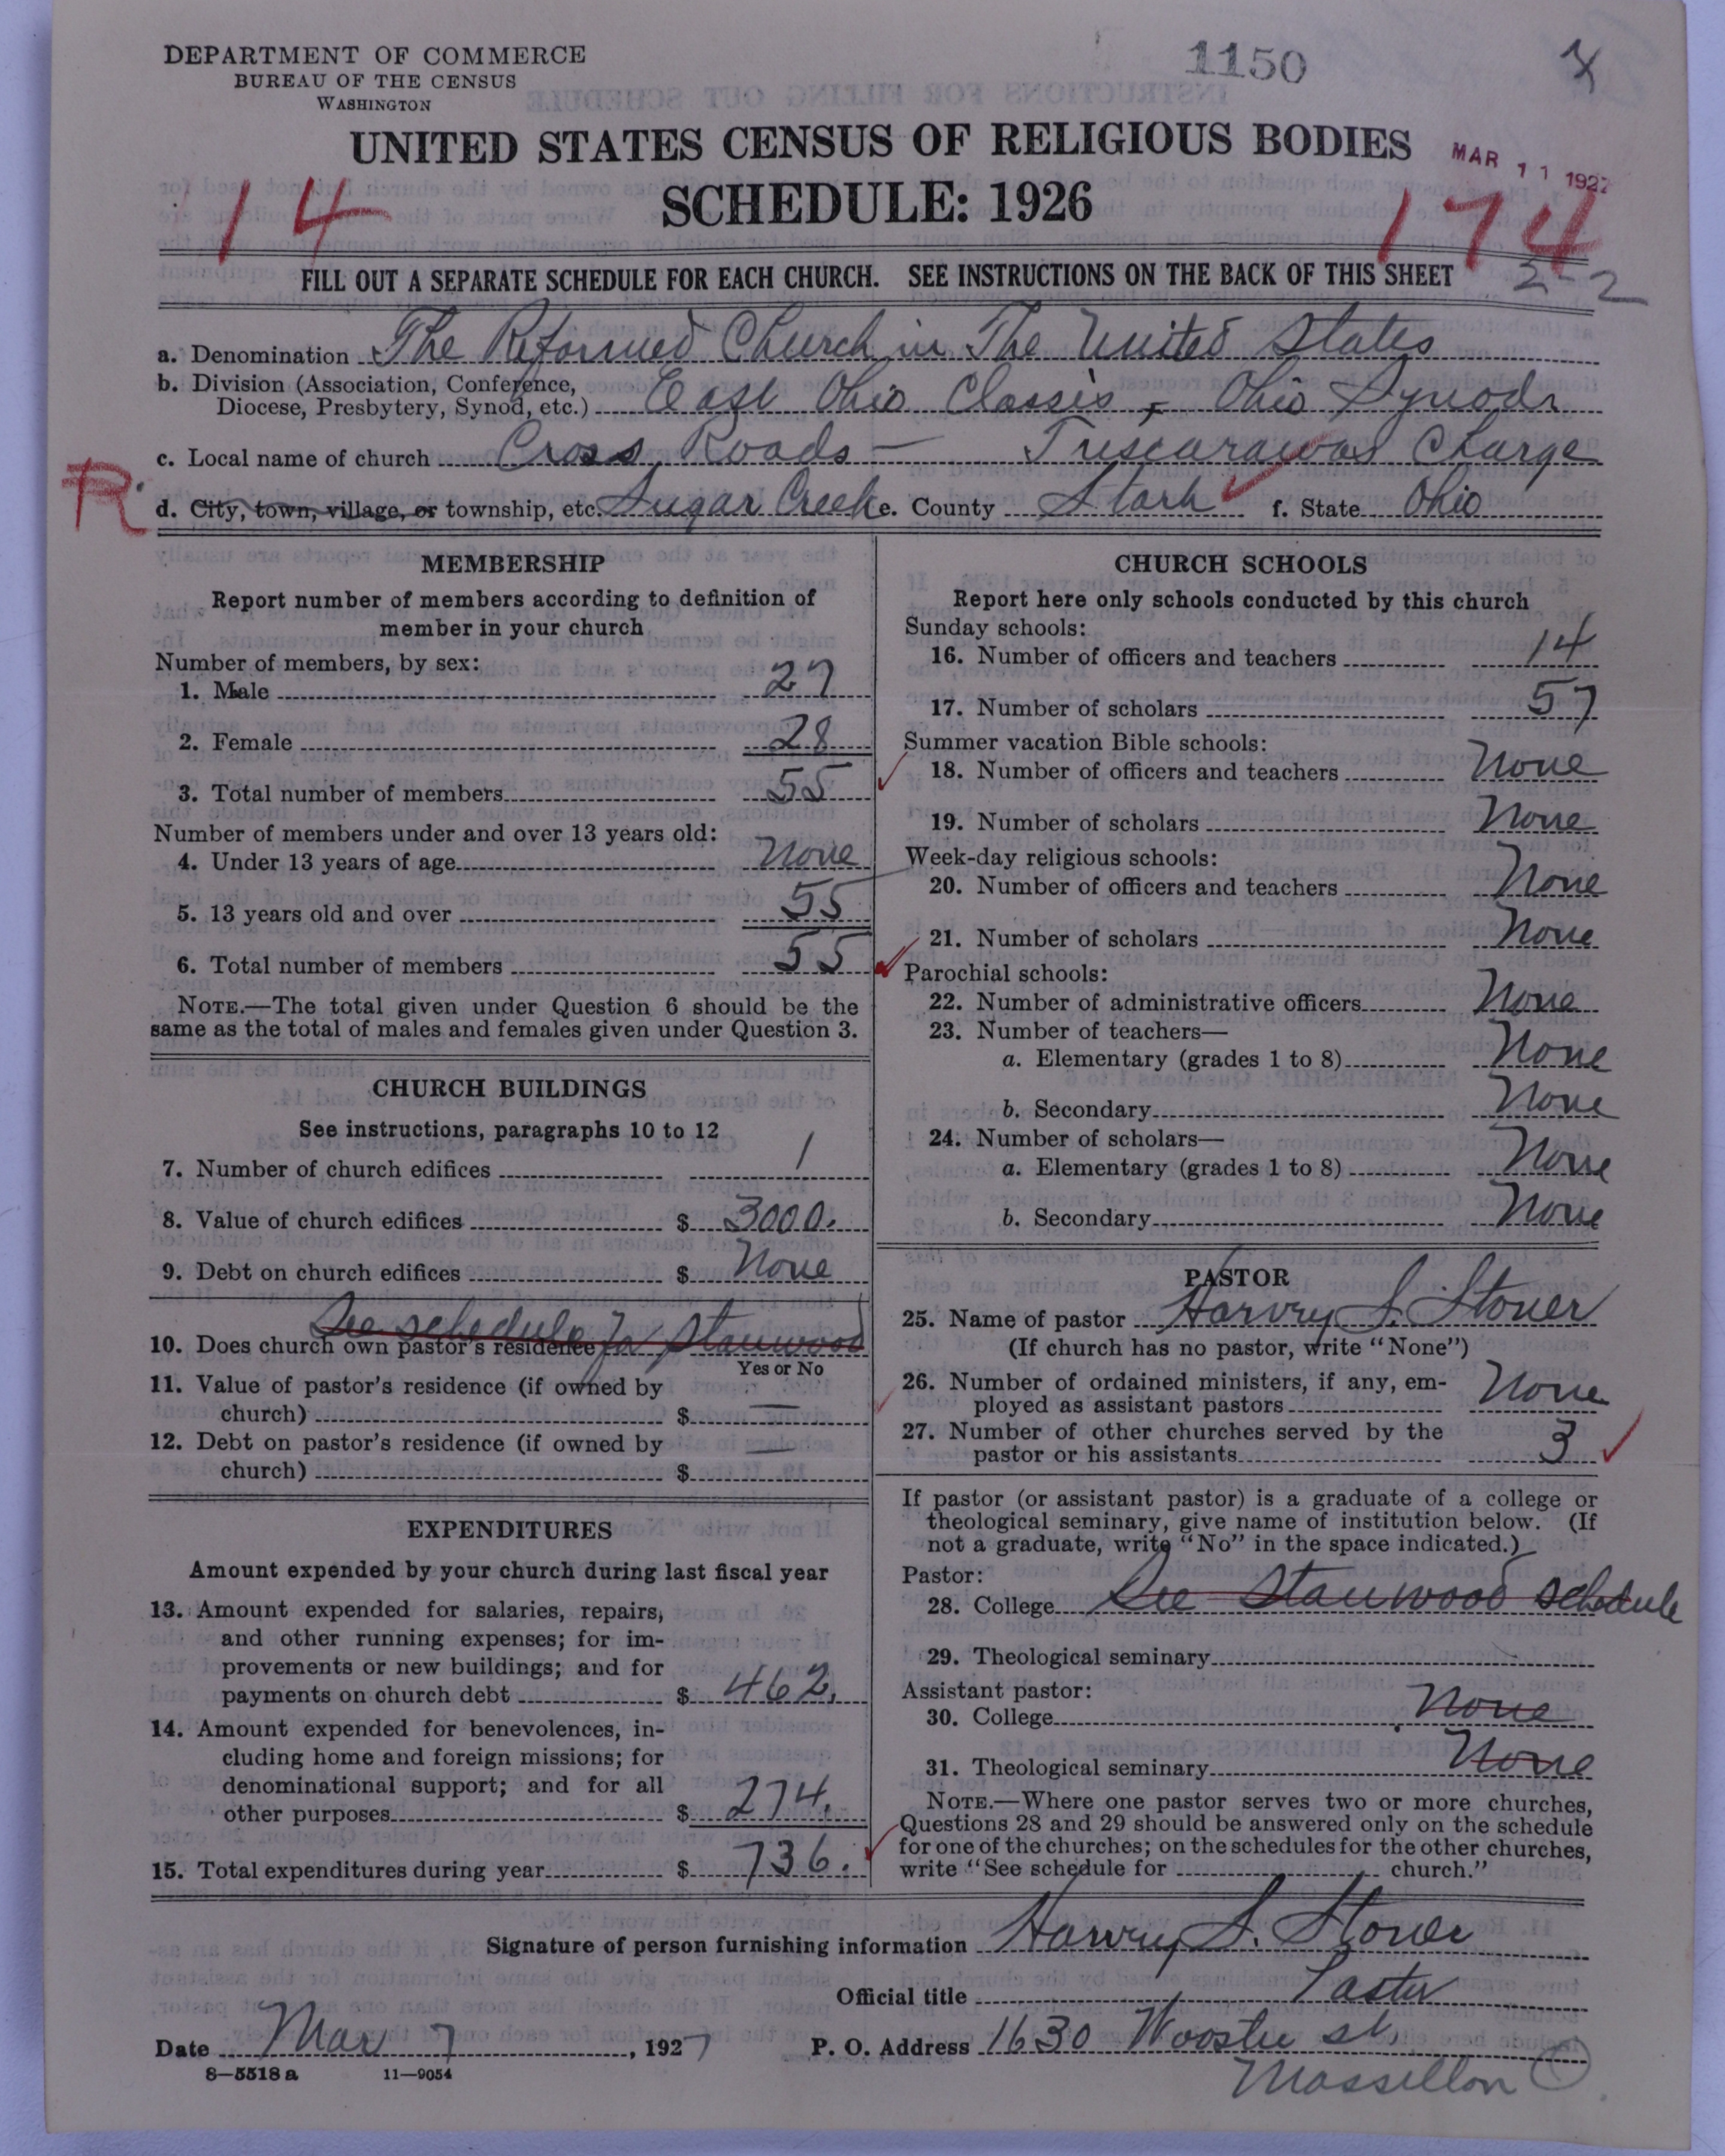 DEPARTMENT OF COMMERCE
BUREAU OF THE CENSUS
WASHINGTON
1150
X
UNITED STATES CENSUS OF RELIGIOUS BODIES
MAR 11 1927
SCHEDULE: 1926
14
174
FILL OUT A SEPARATE SCHEDULE FOR EACH CHURCH. SEE INSTRUCTIONS ON THE BACK OF THIS SHEET
2-2
a. Denomination The Reformed Church in The United States
b. Division (Association, Conference,
Diocese, Presbytery, Synod, etc.) East Ohio Classis, Ohio Synod
c. Local name of church Cross Roads — Tuscarawas Charge
R
d. City, town, village, or township, etc. Sugar Creek e. County Stark f. State Ohio
MEMBERSHIP
Report number of members according to definition of
member in your church
Number of members, by sex:
1. Male 27
2. Female 28
3. Total number of members 55
Number of members under and over 13 years old:
4. Under 13 years of age None
5. 13 years old and over 55
6. Total number of members 55
NOTE.—The total given under Question 6 should be the
same as the total of males and females given under Question 3.
CHURCH BUILDINGS
See instructions, paragraphs 10 to 12
7. Number of church edifices 1
8. Value of church edifices $ 3000.
9. Debt on church edifices $ None
See schedule for Stanwood
10. Does church own pastor's residence
Yes or No
11. Value of pastor's residence (if owned by
church) $ —
12. Debt on pastor's residence (if owned by
church) $ —
EXPENDITURES
Amount expended by your church during last fiscal year
13. Amount expended for salaries, repairs,
and other running expenses; for im-
provements or new buildings; and for
payments on church debt $ 462.
14. Amount expended for benevolences, in-
cluding home and foreign missions; for
denominational support; and for all
other purposes $ 274.
15. Total expenditures during year $ 736.
CHURCH SCHOOLS
Report here only schools conducted by this church
Sunday schools:
16. Number of officers and teachers 14
17. Number of scholars 57
Summer vacation Bible schools:
18. Number of officers and teachers None
19. Number of scholars None
Week-day religious schools:
20. Number of officers and teachers None
21. Number of scholars None
Parochial schools:
22. Number of administrative officers None
23. Number of teachers—
a. Elementary (grades 1 to 8) None
b. Secondary None
24. Number of scholars—
a. Elementary (grades 1 to 8) None
b. Secondary None
PASTOR
25. Name of pastor Harvry S. Stoner
(If church has no pastor, write "None")
26. Number of ordained ministers, if any, em-
ployed as assistant pastors None
27. Number of other churches served by the
pastor or his assistants 3
If pastor (or assistant pastor) is a graduate of a college or
theological seminary, give name of institution below. (If
not a graduate, write "No" in the space indicated.)
Pastor:
28. College See Stanwood schedule
29. Theological seminary
Assistant pastor:
30. College None
31. Theological seminary None
NOTE.—Where one pastor serves two or more churches,
Questions 28 and 29 should be answered only on the schedule
for one of the churches; on the schedules for the other churches,
write "See schedule for church."
Signature of person furnishing information Harvry S. Stoner
Official title Pastor
Date Mar 7, 1927 P. O. Address 1630 Wooster st,
Massillon
8—5518 a 11—9054